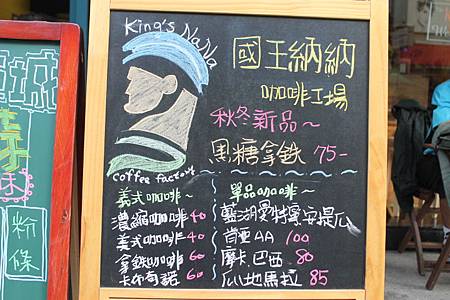 King's NaNa
國王納納
咖啡工場
秋冬新品～
黑糖拿鐵 75-
coffee factory
義式咖啡～
濃縮咖啡 40
美式咖啡 40
拿鐵咖啡 60
卡布奇諾 60
單品咖啡～
肯亞AA 100
摩卡 巴西 80
瓜地馬拉 85
城
粉
條